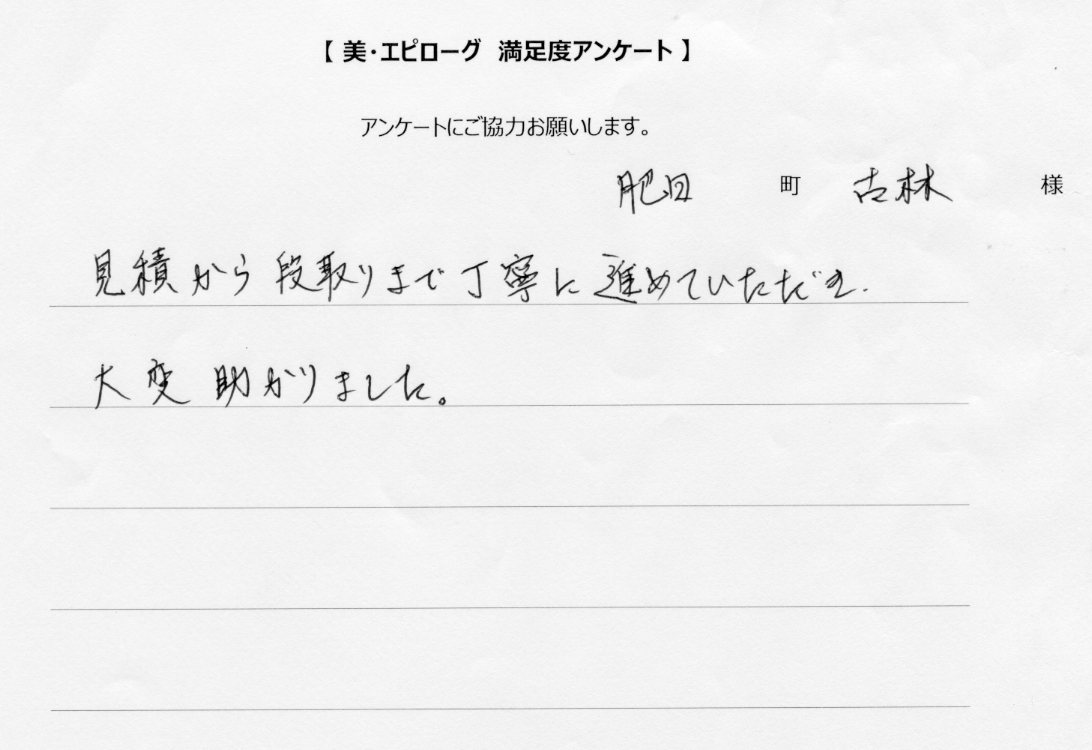 【 美・エピローグ 満足度アンケート 】
アンケートにご協力お願いします。
肥田 町 古林 様
見積から段取りまで丁寧に進めていただき、
大変助かりました。